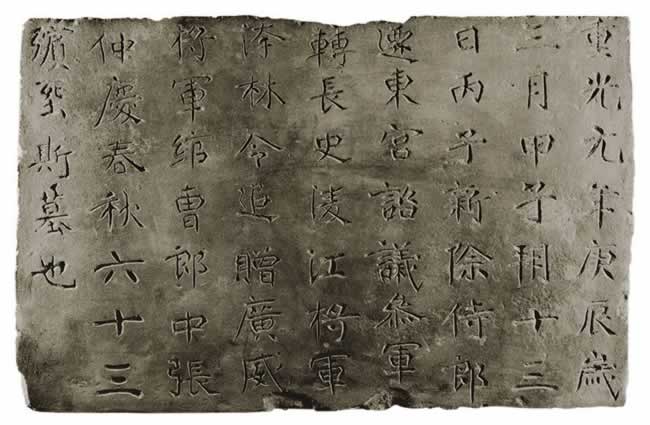 重光元年庚辰歲
三月甲子朔十三
日丙子新除侍郎
遷東宮諮議參軍
轉長史淩江將軍
洿林令追贈廣威
將軍綰曹郎中張
仲慶春秋六十三
殯葬斯墓也